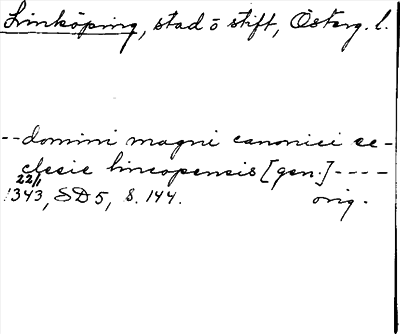 Linköping, stad o stift, Österg. l.
-- domini magni canonici ec-
clesie lincopensis [gen.] ----
22/1
1343, SD5, S. 144. orig.